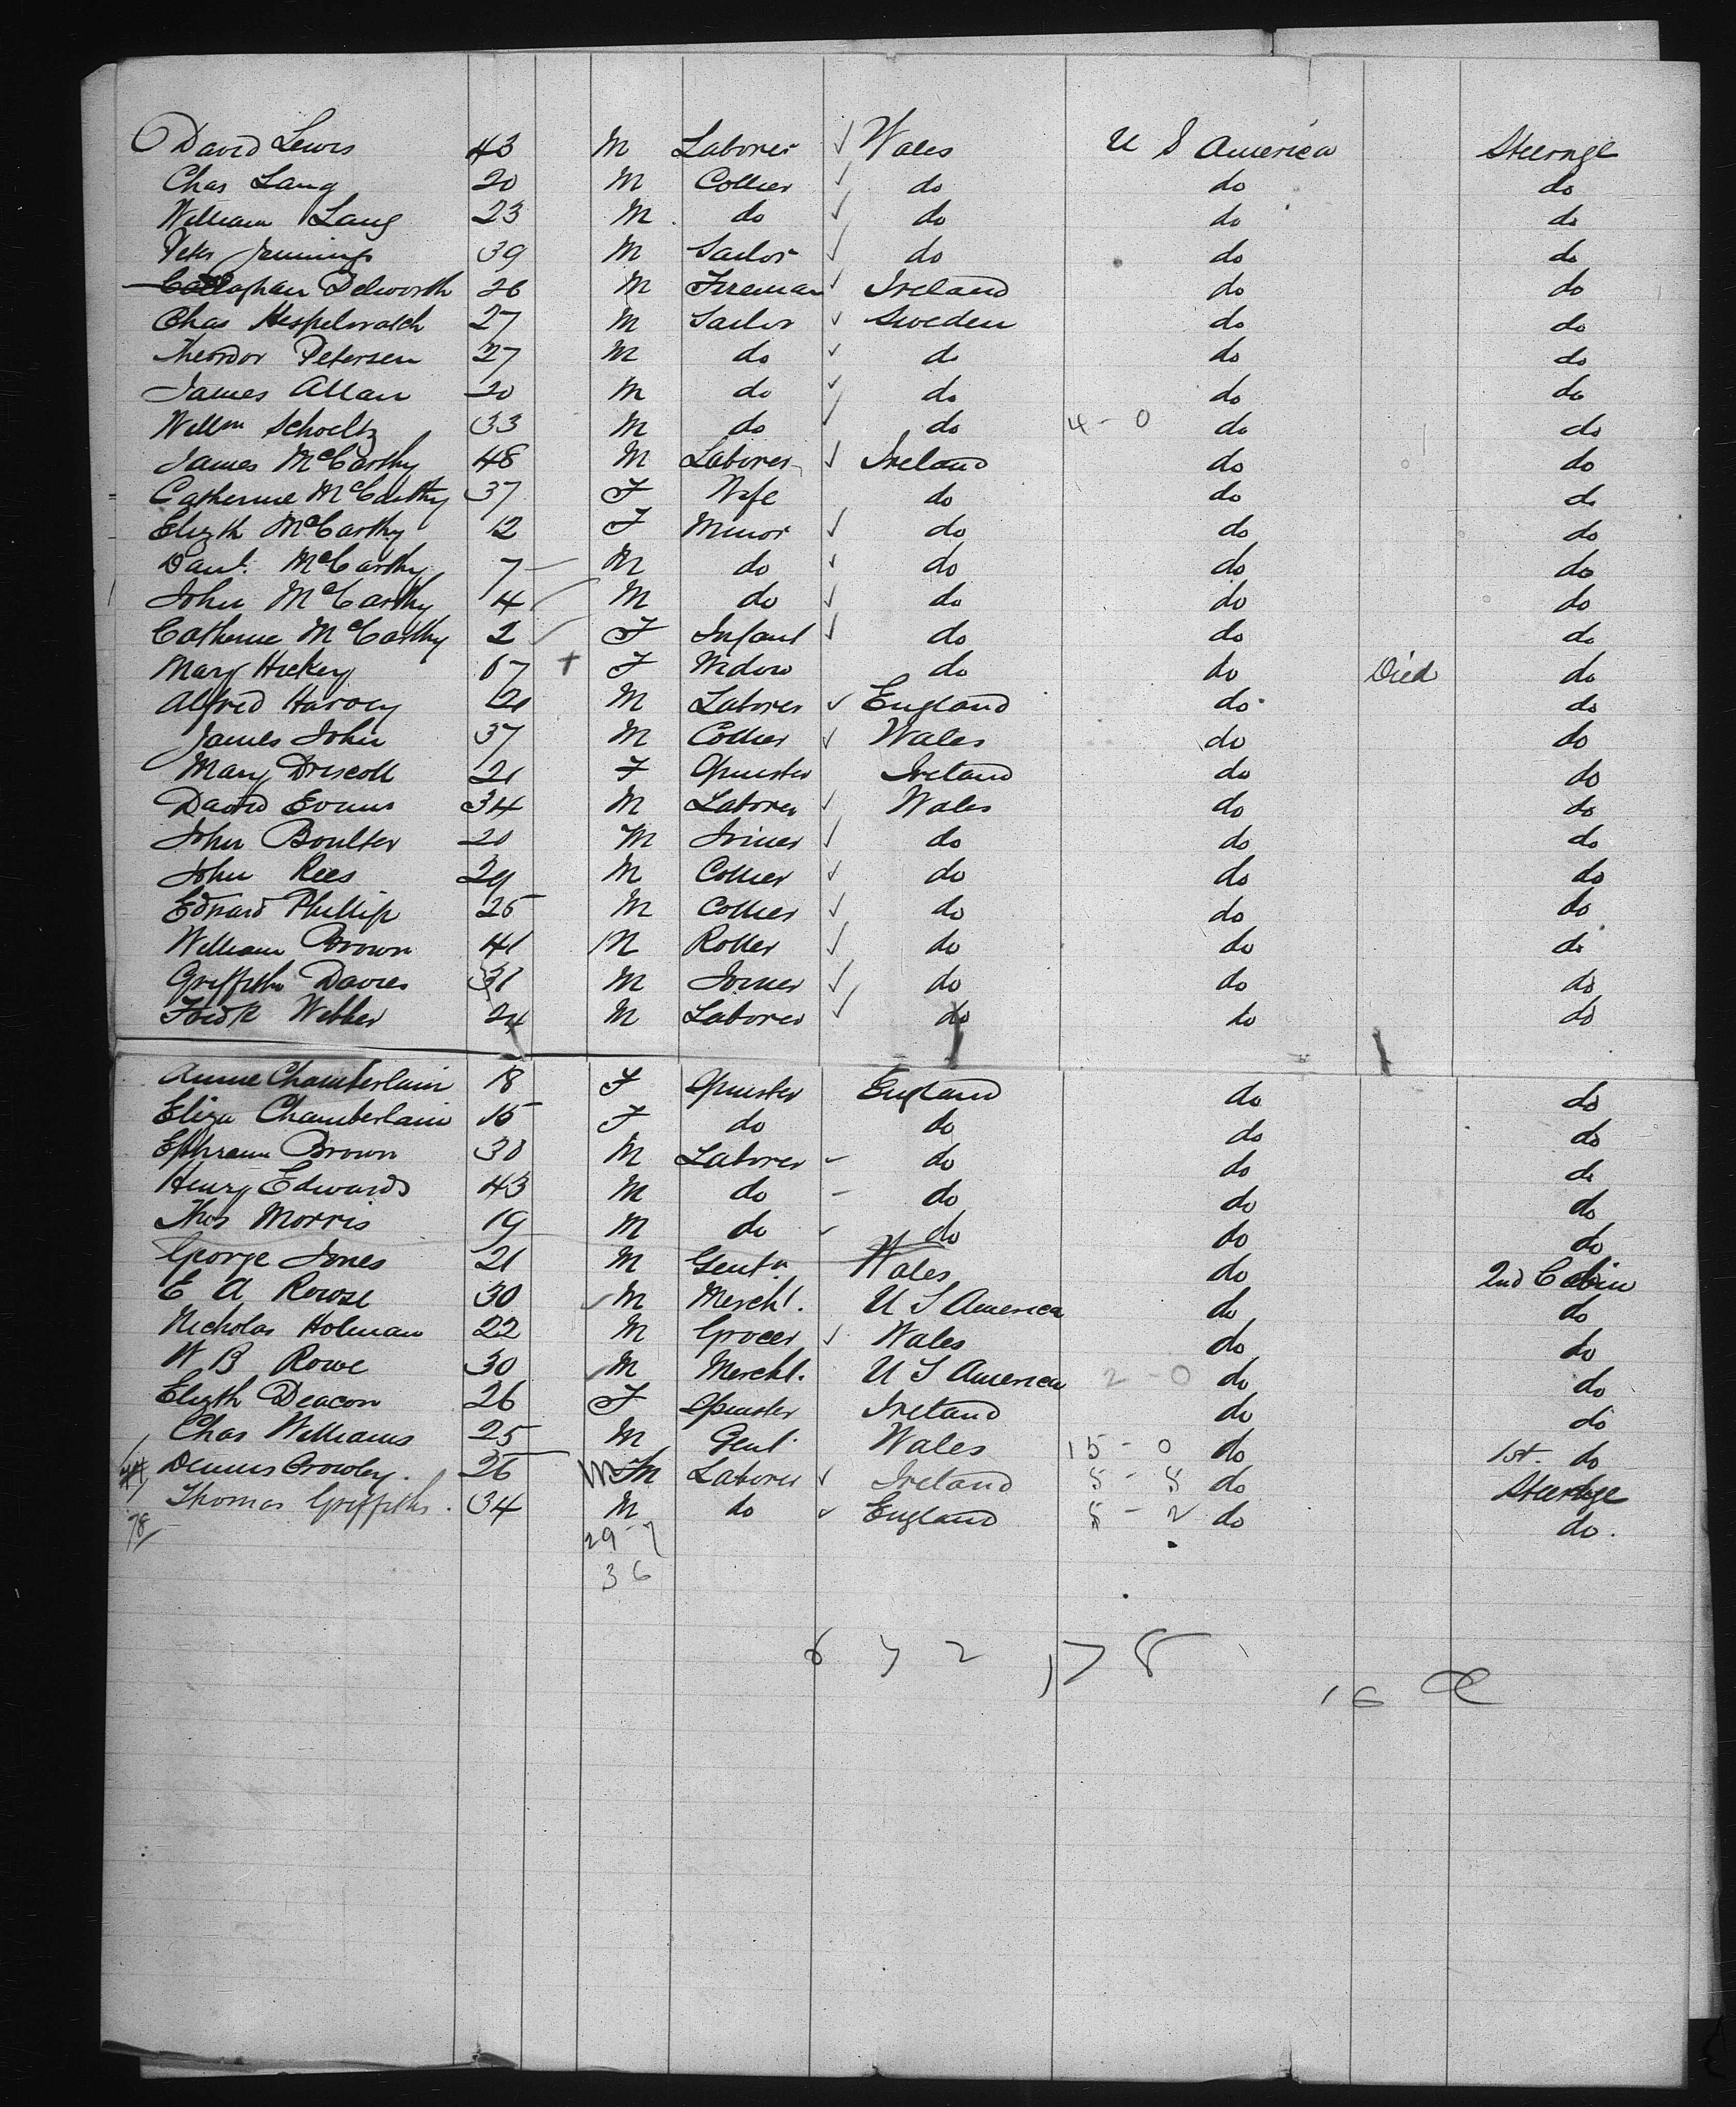 David Lewis 43 M Laborer ✓ Wales U S America Steerage
Chas Lang 20 M Collier ✓ do do do
William Lang 23 M do ✓ do do do
Peter Jennings 39 M Sailor ✓ do do do
Callaghan Delworth 26 M Fireman ✓ Ireland do do
Chas 27 M Sailor ✓ Sweden do do
Theodor Petersen 27 M do ✓ do do do
James Allan 20 M do ✓ do do do
Willm Schoeltz 33 M do ✓ do 4 - 0 do do
James McCarthy 48 M Laborer ✓ Ireland do do
Catherine McCarthy 37 F Wife do do do
Elizth McCarthy 12 F Minor ✓ do do do
Danl. McCarthy 7 M do ✓ do do do
John McCarthy 4 M do ✓ do do do
Catherine McCarthy 2 F Infant ✓ do do do
Mary Hickey 67 + F Widow do do Died do
Alfred Harvey 21 M Laborer ✓ England do do
James John 37 M Collier ✓ Wales do do
Mary Driscoll 21 F Spinster Ireland do do
David Evans 34 M Laborer ✓ Wales do do
John Boulter 20 M Joiner ✓ do do do
John Rees 29 M Collier ✓ do do do
Edward Phillip 25 M Collier ✓ do do do
William Brown 41 M Roller ✓ do do do
Griffiths Davies 31 M Joiner ✓ do do do
Fredk Webber 24 M Laborer ✓ do do do
Annie Chamberlain 18 F Spinster England do do
Eliza Chamberlain 15 F do do do do
Ephraim Brown 30 M Laborer - do do do
Henry Edwards 43 M do - do do do
Thos Morris 19 M do - do do do
George Jones 21 M Gentn Wales do 2nd Cabin
E A Rowse 30 M Mercht. U S America do do
Nicholas Holman 22 M Grocer ✓ Wales do do
W B Rowe 30 M Mercht. U S America 2 - 0 do do
Elizth Deacon 26 F Spinster Ireland do do
Chas Williams 25 M Gent Wales 15 - 0 do 1st. do
Dennis Crowley. 26 M Laborer ✓ Ireland do Steerage
78 Thomas Griffiths. 34 M do ✓ England do do.
29 - 7
36